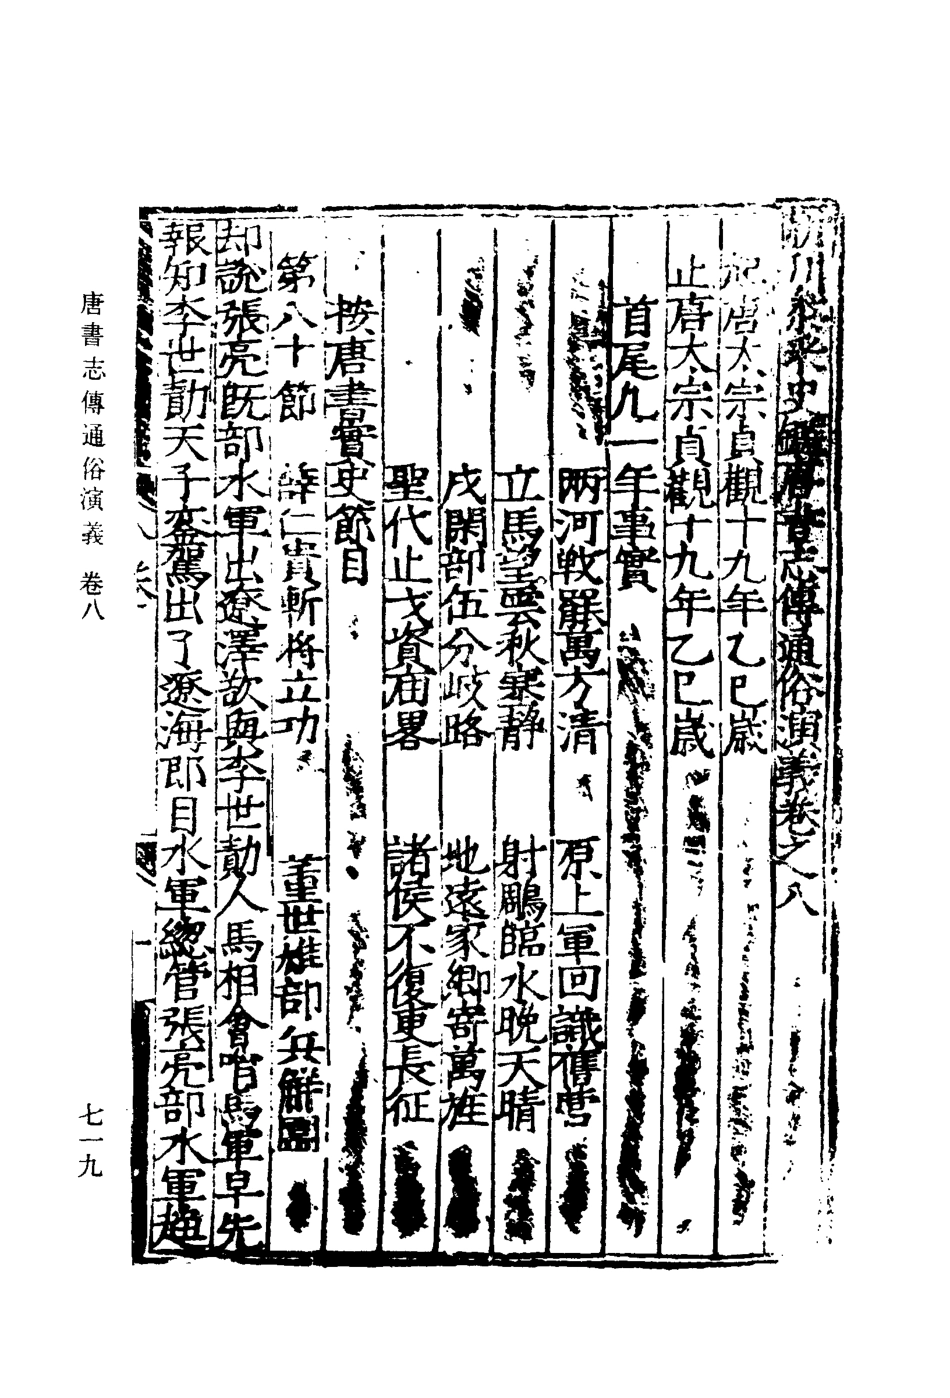 新刊參采史鑑唐書志傳通俗演義卷之八
起唐太宗貞觀十九年乙巳歲
止唐太宗貞觀十九年乙巳歲
首尾凡一年事實
兩河戰罷萬方清 原上軍回識舊營
立馬望雲秋塞靜 射鵰臨水晚天晴
戍閑部伍分岐路 地遠家鄉寄萬旌
聖代止戈資廟畧 諸侯不復更長征
按唐書實史節目
第八十節 薛仁貴斬將立功 董世雄部兵解圍
却說張亮既部水軍出遼澤欲與李世勣人馬相會哨馬軍早先
報知李世勣天子鑾駕出了遼海即目水軍總管張亮部水軍趨
唐書志傳通俗演義 卷八
七一九